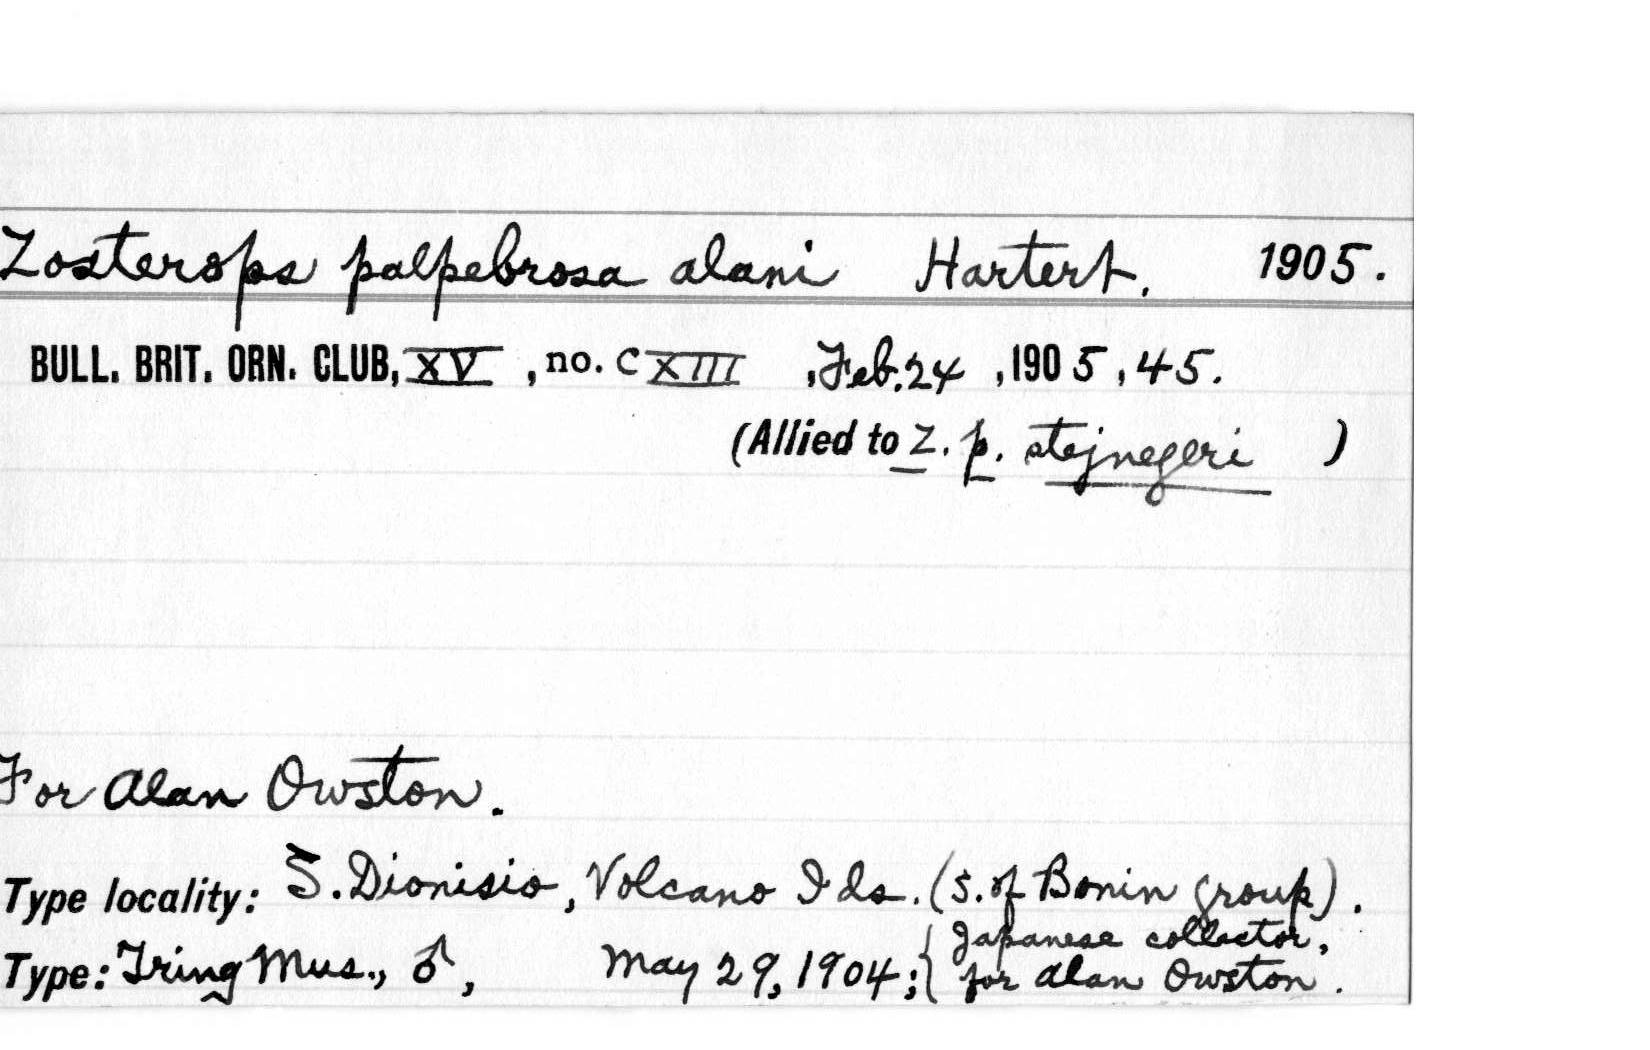 Zosterops palpebrosa alani Hartert. 1905.
BULL. BRIT. ORN. CLUB, XV, no. CXIII, Feb. 24, 1905, 45.
(Allied to Z. p. stejnegeri)
For Alan Owston.
Type locality: S. Dionisio, Volcano Ids. (S. of Bonin group).
Type: Tring Mus., ♂, May 29, 1904; { Japanese collector,
for Alan Owston.